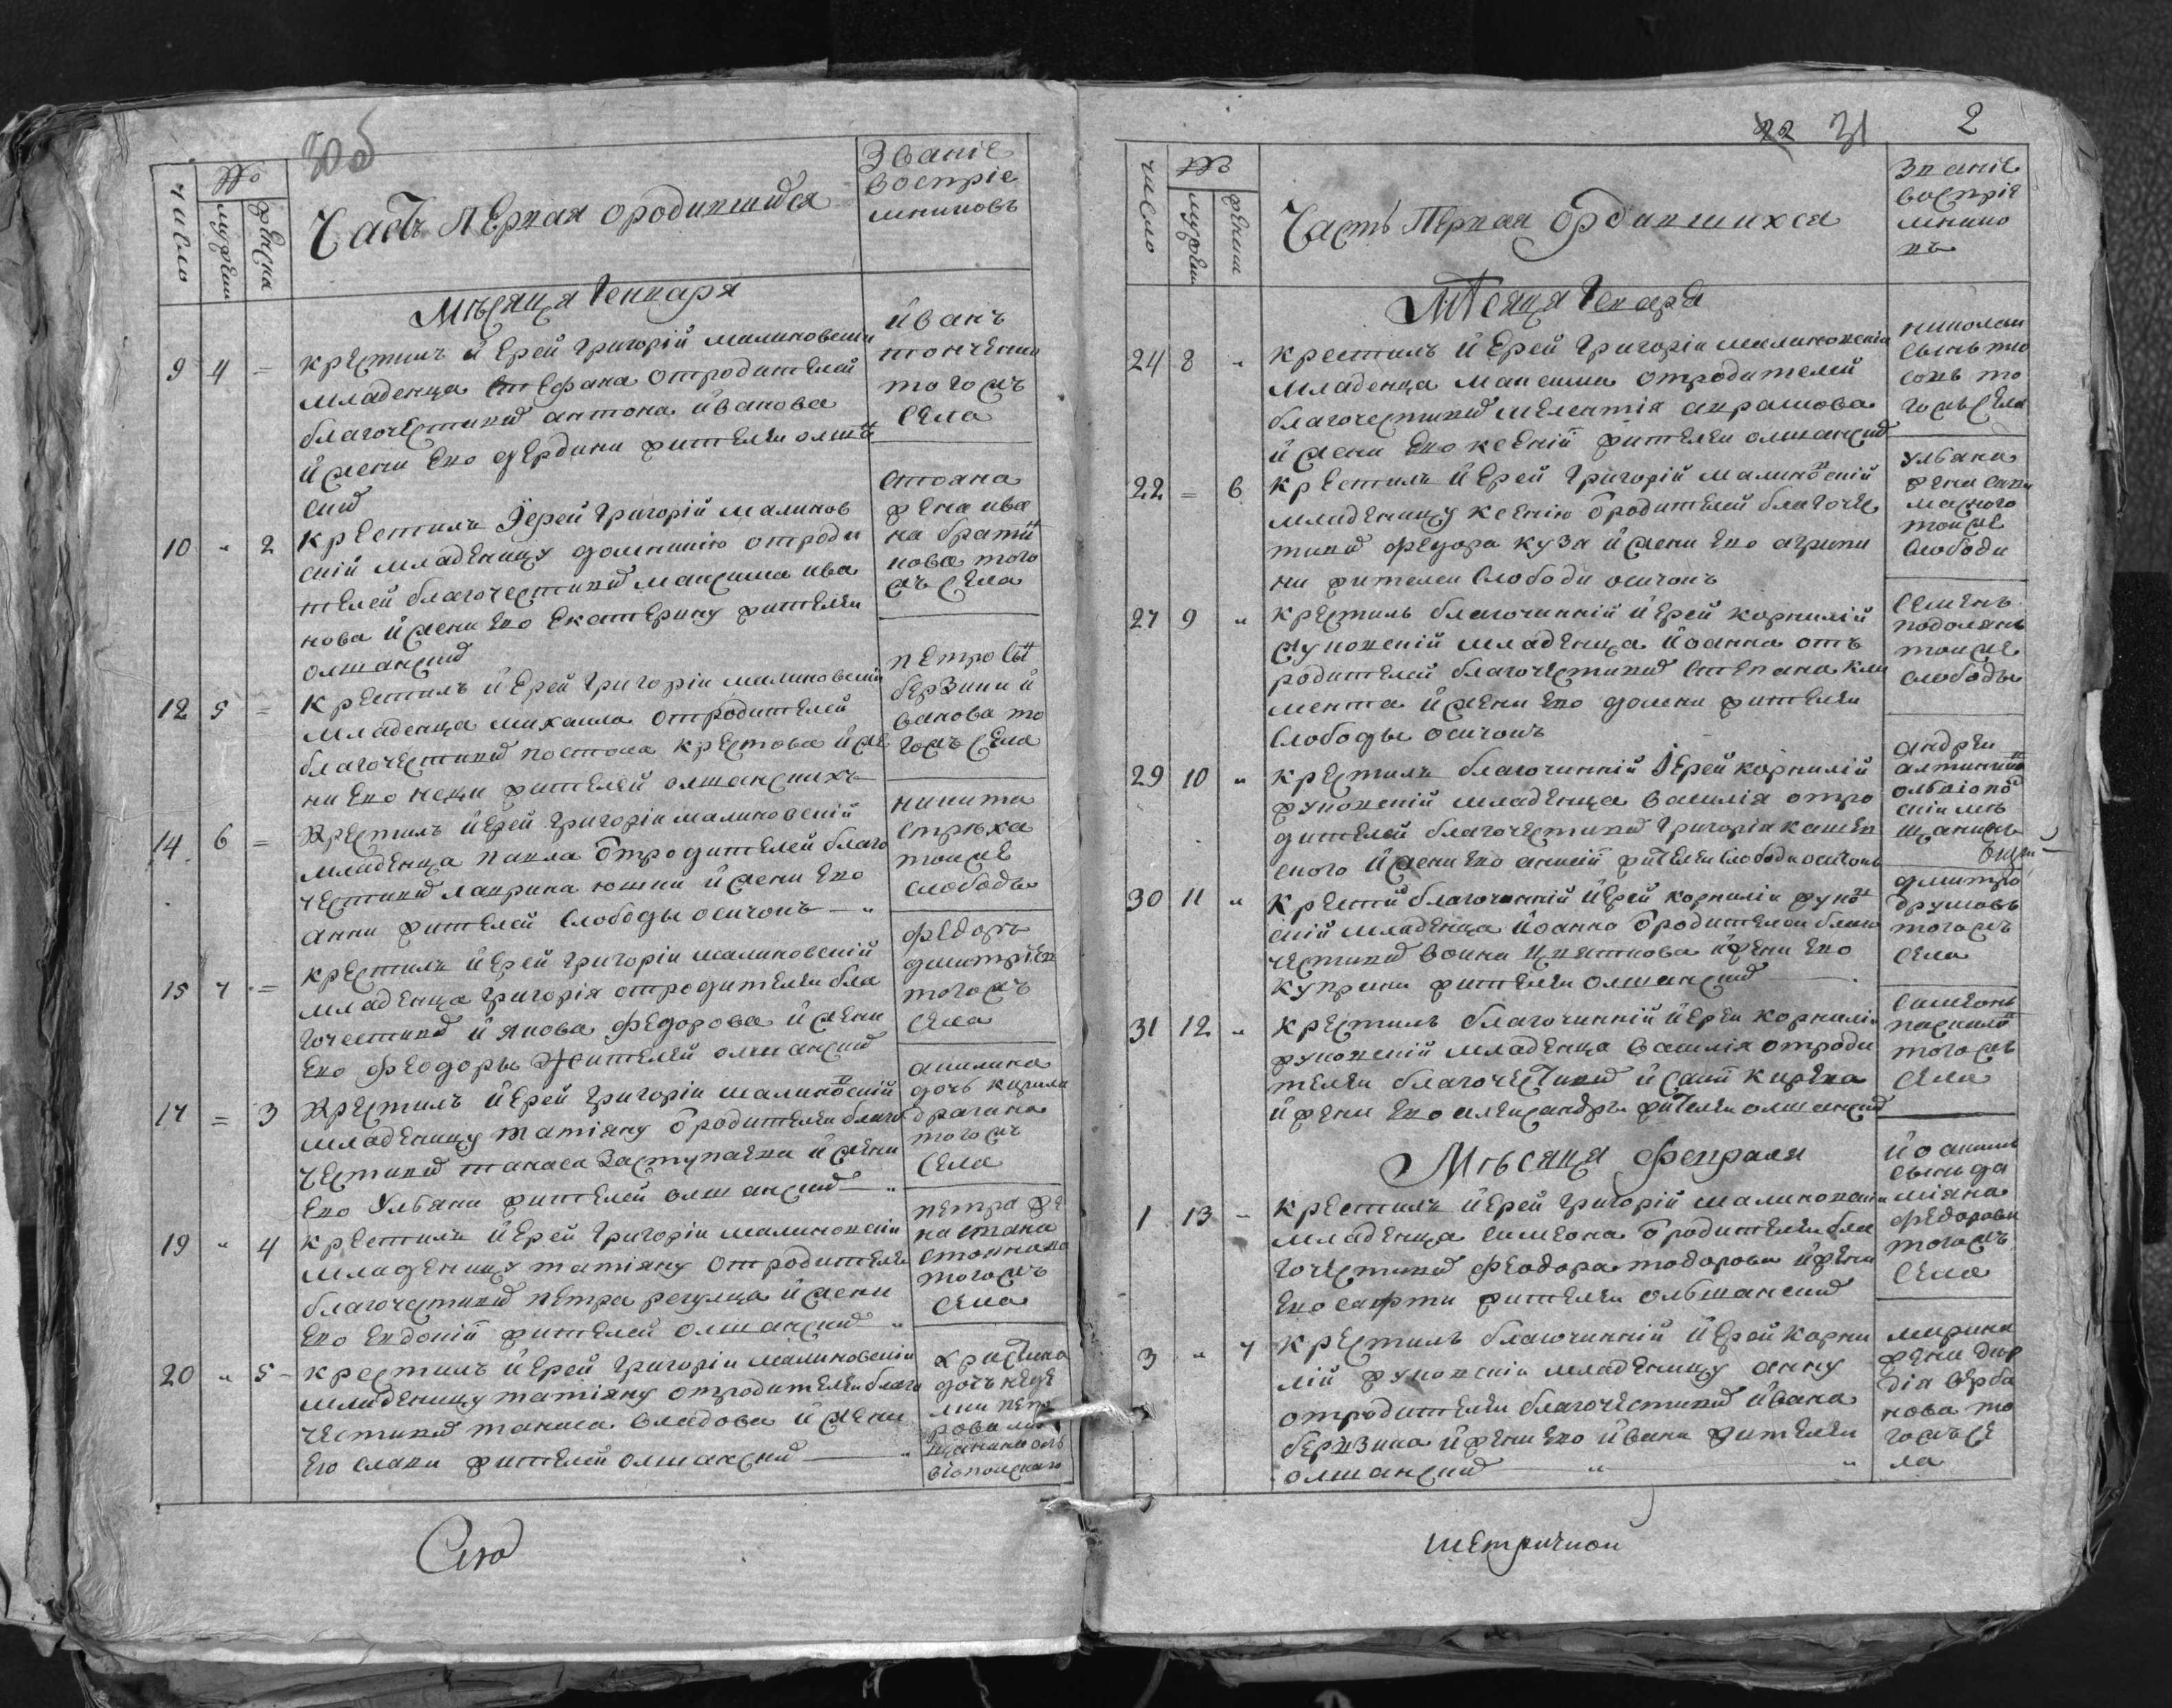 30об
число
№
мужеск
женска
Часть первая о родившихся
Званіе
воспріе
мниковъ
Мѣсяца Генваря
9 4 =
крестилъ иерей Григорій Малиновски
младенца Стефана отродителей
благочестивих Антона Иванова
и жени его Жердини жителей олша
ских
Иванъ
тогожъ
села
10 " 2
крестилъ Іерей Григорій Малинов
скій младеницу Домникию отроди
телей благочестивих Максима Ива
нова и жени его Екатерину жителей
олшанских
Стояна
жена Ива
на Брати
нова того
жъ села
12 5 =
крестилъ иерей Григоріи Малиновский
младенца Михаила отродителей
благочестивих Костова Крестова и же
ни его Неди жителей олшанскихъ
Петро Сы
Берзини И
ванова то
гожъ села
14 6 =
Крестилъ иерей Григоріи Малиновскій
младенца Павла отродителей благо
честивих Лаврина Юшки и жени его
Анни жителей слободы осичокъ "
Никита
Стрюха
тоиже
слободы
15 7 =
крестилъ иерей Григоріи Малиновскій
младенца Григорія отродителеи бла
гочестивих Иякова Федорова и жени
его Феодоры жителей олшанских
Федоръ
Дмитріев
тогожъ
села
17 = 3
Крестилъ иерей Григоріи Малиновскій
младеницу Татіяну отродителеи благо
честивих Танаса Заступаека и жени
его Ульяни жителей олшанских "
Акилина
дочь Кирила
Драгана
тогожъ
села
19 " 4
крестилъ иерей Григоріи Малиновскіи
младеницу Татіяну отродителеи
благочестивих Петра Регулца и жени
его Евдокій жителей олшанских "
Петра же
на Стана
Стоянова
тогожъ
села
20 " 5 -
крестилъ иерей Григоріи Малиновскіи
младеницу Татіяну отродителеи благо
честивих Танаса Владова и жени
его Слави жителей олшанских "
Христина
дочь Неде
ли Пет
рова ми
щанина оль
віопольскаго
Сию
22 31 2
число
№
мужеск
женск
Часть Первая о рдившихся
Званіе
воспріе
мнико
въ
Мсяца Генаря
24 8 "
крестилъ иерей Григоріи Малиновскіи
младенца Максима отродителей
благочестивих Мелентія Аврамова
и жени его Ксеній жителеи олшанских
Николаи
сынъ
то
гожъ села
22 = 6
крестилъ иерей Григорій Малиновскій
младеницу Ксенію отродителей благочес
тивих Федора Куза и жени его Агрипи
ни жителеи слободи осичокъ
Ульяна
жена
тоиже
слободи
27 9 "
крестилъ благочинній иерей Корнилій
Жуковскій младенца Иоанна отъ
родителей благочестивих Степана Кли
мента и жени его Домни жителеи
слободы осичокъ
Семенъ
Подолянъ
тоиже
слободы
29 10 "
крестилъ благочинній Іерей Корнилій
Жуковскій младенца Василія отро
дителей благочестивих Григорія Кашев
ского и жени его Анисіи жителеи слободи осичокъ
Андреи
ольвіопол
скіи мѣ
щанинъ
30 11 "
крести благочинній иерей Корниліи Жуков
скій младенца Иоанна отродителеи благо
честивих Воина Цветкова и жени его
Куприни жителеи олшанских
Дмитро
Друмовъ
тогожъ
села
31 12 "
крестилъ благочинній иереи Корнилій
Жуковскій младенца Василія отроди
телеи благочестивих Исаии Кирека
и жени его Александри жителеи олшанских
Симеонъ
тогожъ
села
Мѣсяца Февраля
1 13 -
крестилъ иерей Григорій Малиновски
младенца Симеона отродителеи бла
гочестивих Феодора Тодорова и жени
его Сафти жителеи ольшанских
Иоаникъ
сынъ Да
міяна
Федорова
тогожъ
села
3 " 7
крестилъ благочинній иерей Корни
лій Жуковскіи младеницу Анну
отродителеи благочестивих Ивана
Берзина и жени его Ивани жителеи
олшанских " "
Марина
жена
дія Верба
нова то
гожъ се
ла
метричной